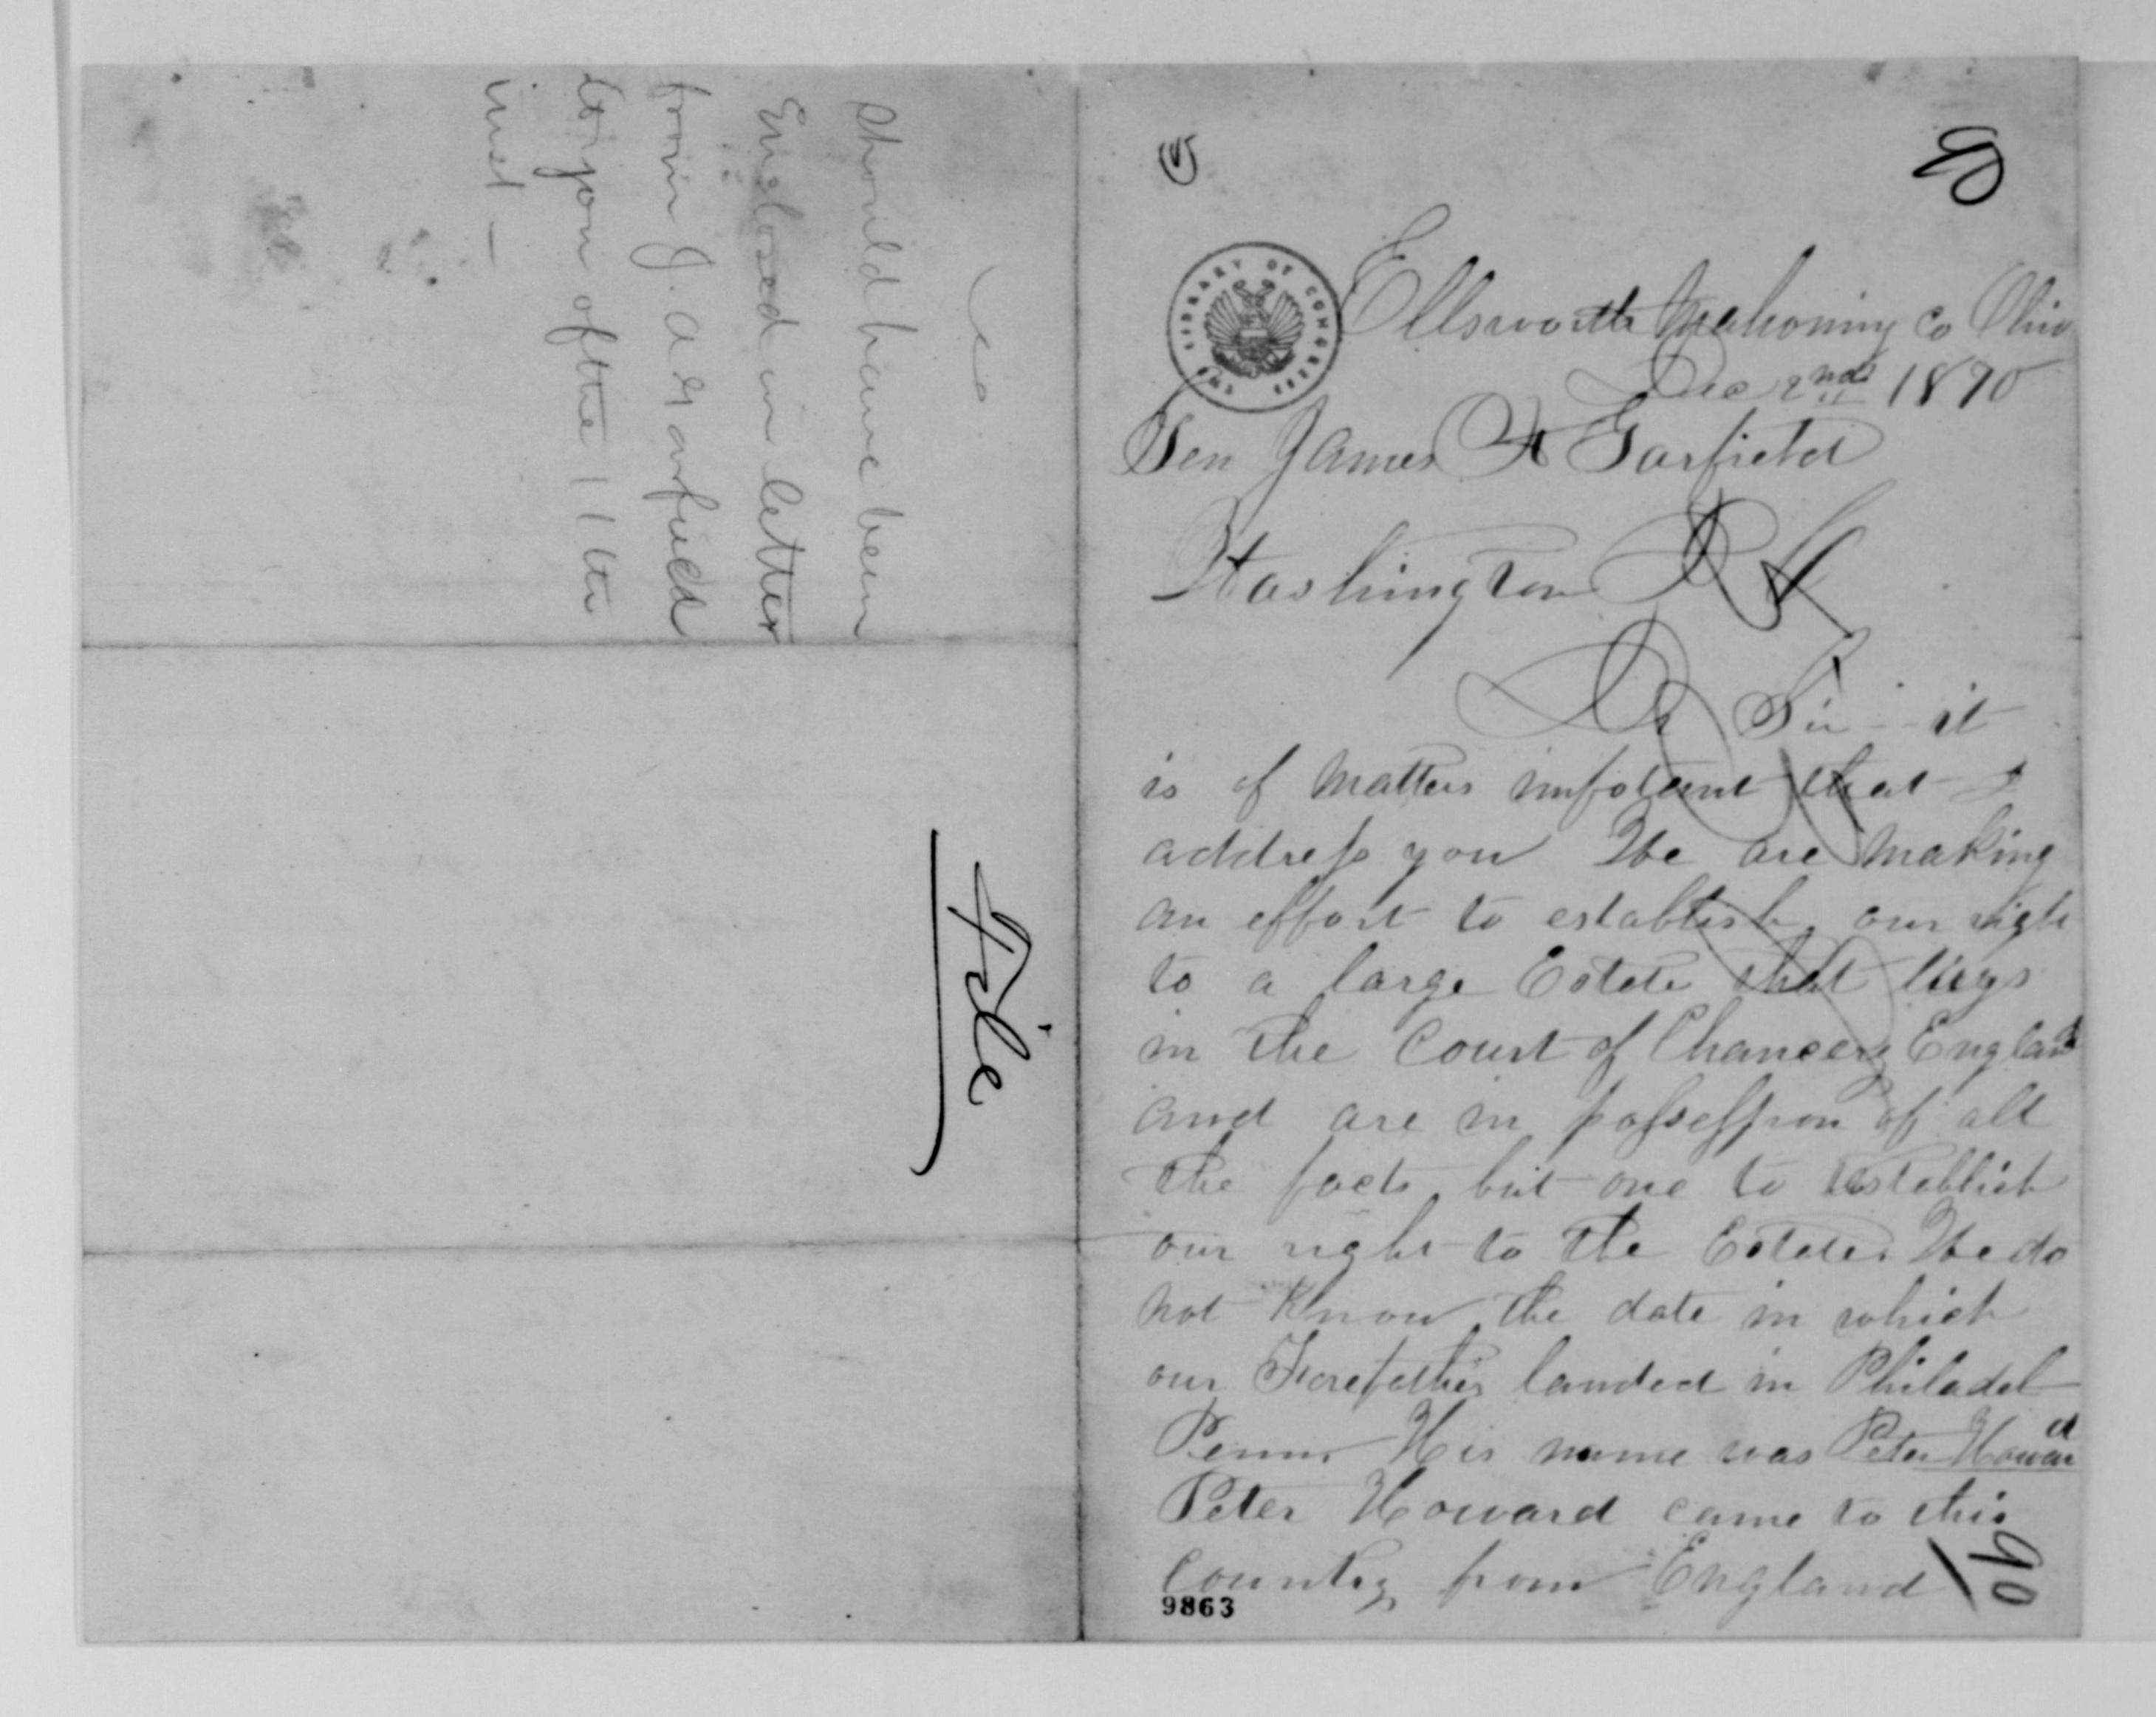 should have been
Enclosed in letter
from J. A. Garfield
to you of the 11th
inst —
File
THE LIBRARY OF CONGRESS
Ellsworth Mahoning Co Ohio
Dec 2nd 1870
Gen James A Garfield
Washington D C
Dr Sir it
is of matters impotant that I
address you We are making
an effort to establish our right
to a large Estate that lieys
in the Court of Chancery England
and are in possession of all
the facts but one to establish
our right to the Estate. We do
not Know the date in which
our Forefather landed in Philadel
Penn. His name was Peter Howard
Peter Howard came to this
Country from England
90
9863